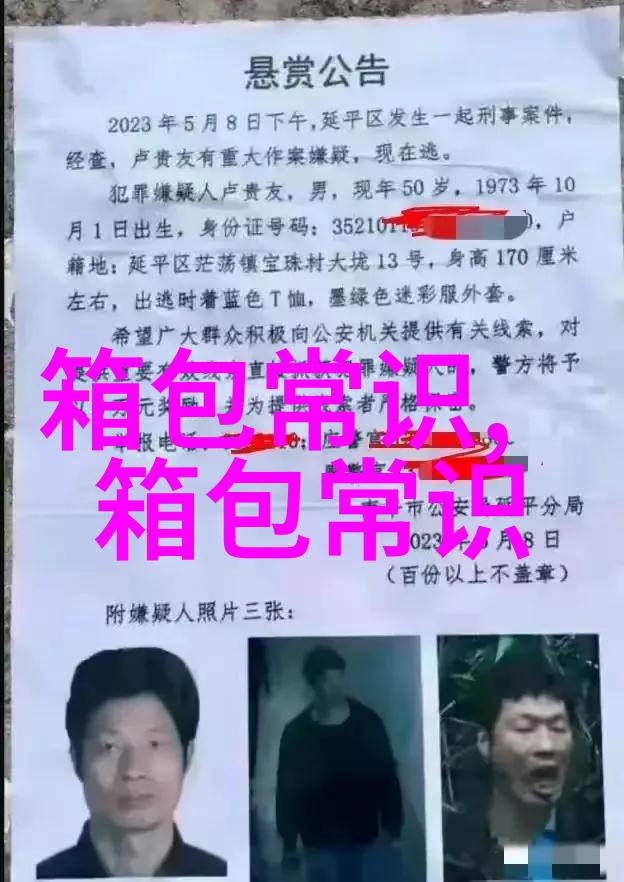 悬赏公告
2023年5月8日下午,延平区发生一起刑事案件,
经查,卢贵友有重大作案嫌疑,现在逃。
犯罪嫌疑人卢贵友,男,现年50岁,1973年10
月1日出生,身份证号码:3521011 0,户
籍地:延平区茫荡镇宝珠村大垅13号,身高170厘米
左右,出逃时着蓝色T恤,墨绿色迷彩服外套。
希望广大群众积极向公安机关提供有关线索,对
警方将予
万元奖励
举报电话
箱包常识,
箱包常识
市公安局延平分局
2023年5月8日
(百份以上不盖章)
附嫌疑人照片三张: